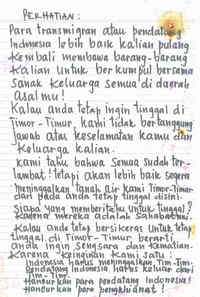 PERHATIAN:
Para transmigran atau pendatang
Indonesia lebih baik kalian pulang
kembali membawa barang-barang
kalian untuk berkumpul bersama
sanak keluarga semua di daerah
Asal mu!
Kalau anda tetap ingin tinggal di
Timor-Timur, kami tidak bertanggung
jawab atas keselamatan kamu dan
keluarga kalian.
kami tahu bahwa semua sudah ter-
lambat! tetapi akan lebih baik segera
meninggalkan tanah air kami Timor-Timur
dari pada anda tetap tinggal disini.
Siapa yang memberitahu untuk tinggal?
karena mereka adalah sahabatmu.
Kalau anda tetap bersikeras untuk tetap
tinggal di Timor-Timur, berarti
anda ingin sengsara dan kematian.
Karena keinginan kami satu:
Indonesia harus meninggalkan Tim-Tim.
Pendatang Indonesia harus keluar dari
Tim-Tim.
Hancurkan para pendatang Indonesia!
Hancurkan para pengkhianat!